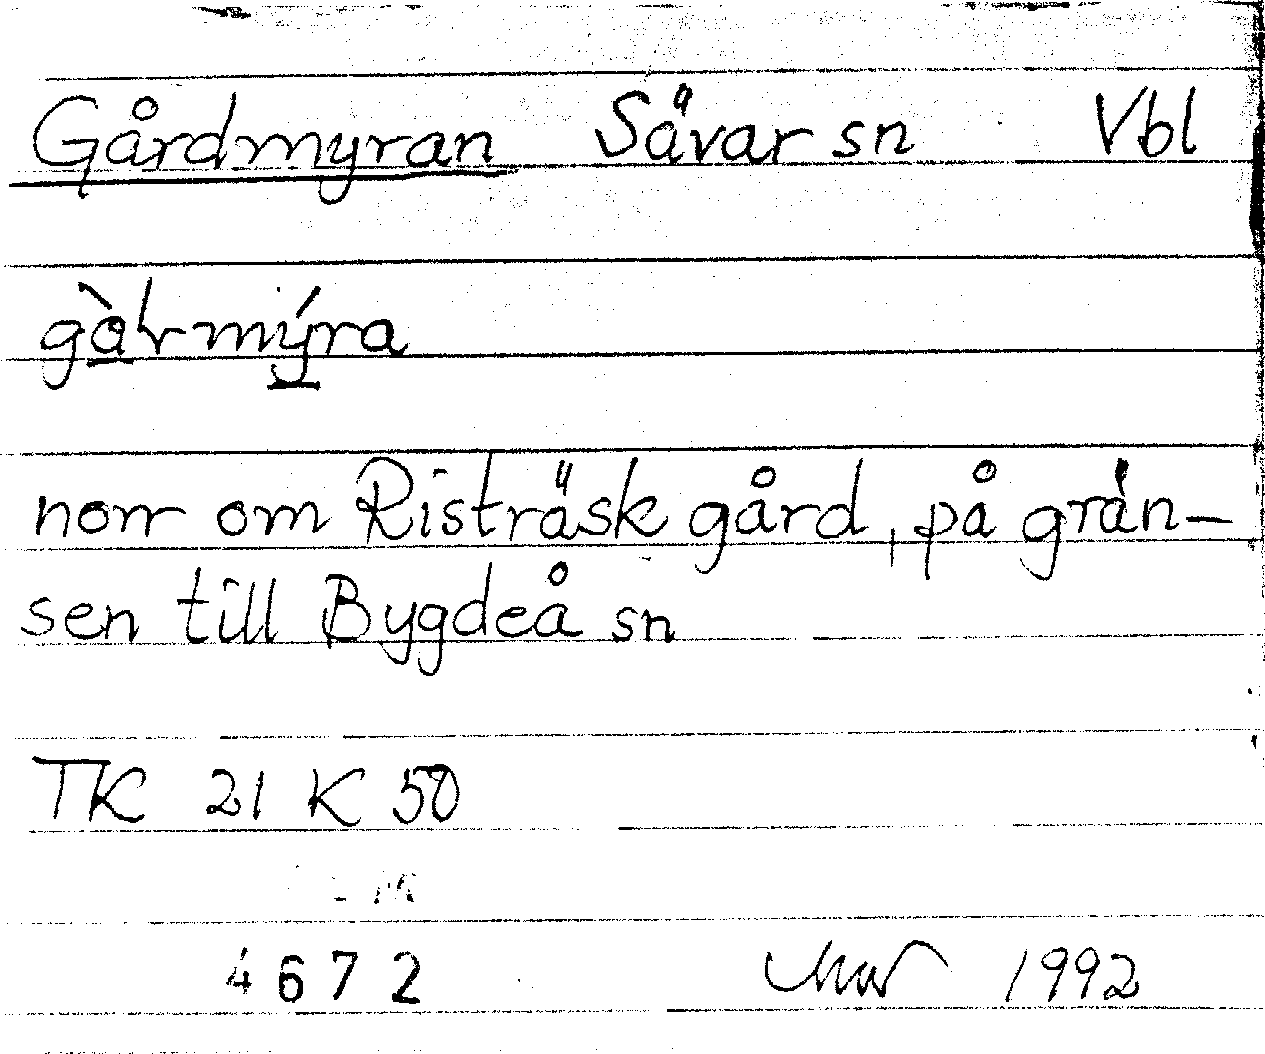 Gårdmyran Sävar sn Vbl
gàlrmýra
norr om Risträsk gård, på grän-
sen till Bygdeå sn
TK 21 K 50
4672 1992